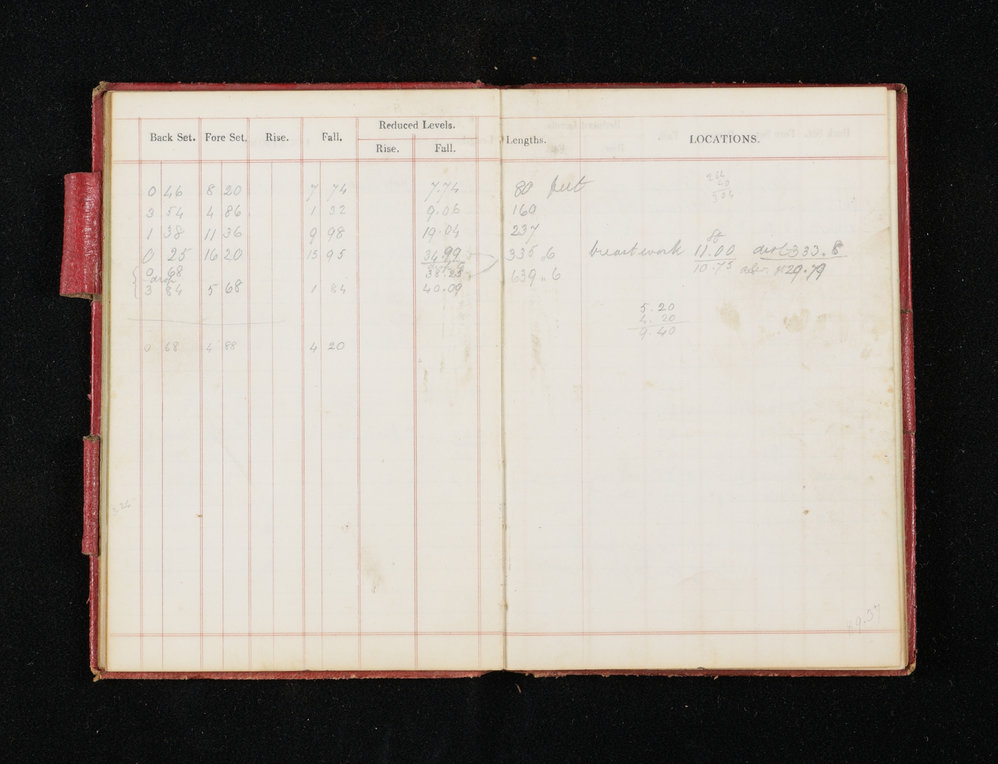 Back Set. Fore Set. Rise. Fall. Reduced Levels. Rise. Fall. Lengths. LOCATIONS.
0 46 8 20 7 74 7.74 80 feet
3 54 4 86 1 32 9.06 160
1 38 11 36 9 98 19.04 237
0 25 16 20 15 95 34.99 335.6 breastwork 11.00 dist 333.8
0 68 38.25 639.6 10.75 29.79
3 84 5 68 1 84 40.09
5.20
4.20
9.40
0 68 4 88 4 20